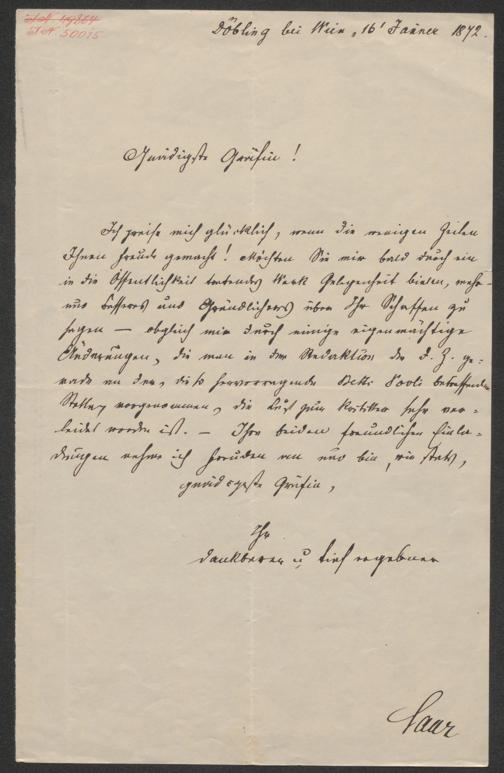 I. N. 50015
Döbling bei Wien, 16t Jänner 1872.
Gnädigste Gräfin!
Ich preise mich glücklich, wenn die wenigen Zeilen
Ihnen Freude gemacht! Möchten Sie mir bald durch ein
in die Öffentlichkeit tretendes Werk Gelegenheit bieten, mehr
und Besseres und Gründlicheres über Ihr Schaffen zu
sagen — obgleich mir durch einige eigenmächtige
Änderungen, die man in der Redaktion der d. Z. ge-
rade an den, diese hervorragende Betti Paoli betreffenden
Stellen vorgenommen, die Lust zum Kritiker sehr ver-
leidet worden ist. — Ihre beiden freundlichen Einla-
dungen nehme ich Freuden an und bin, wie stets,
gnädigste Gräfin,
Ihr
dankbarer u tief ergebener
Saar